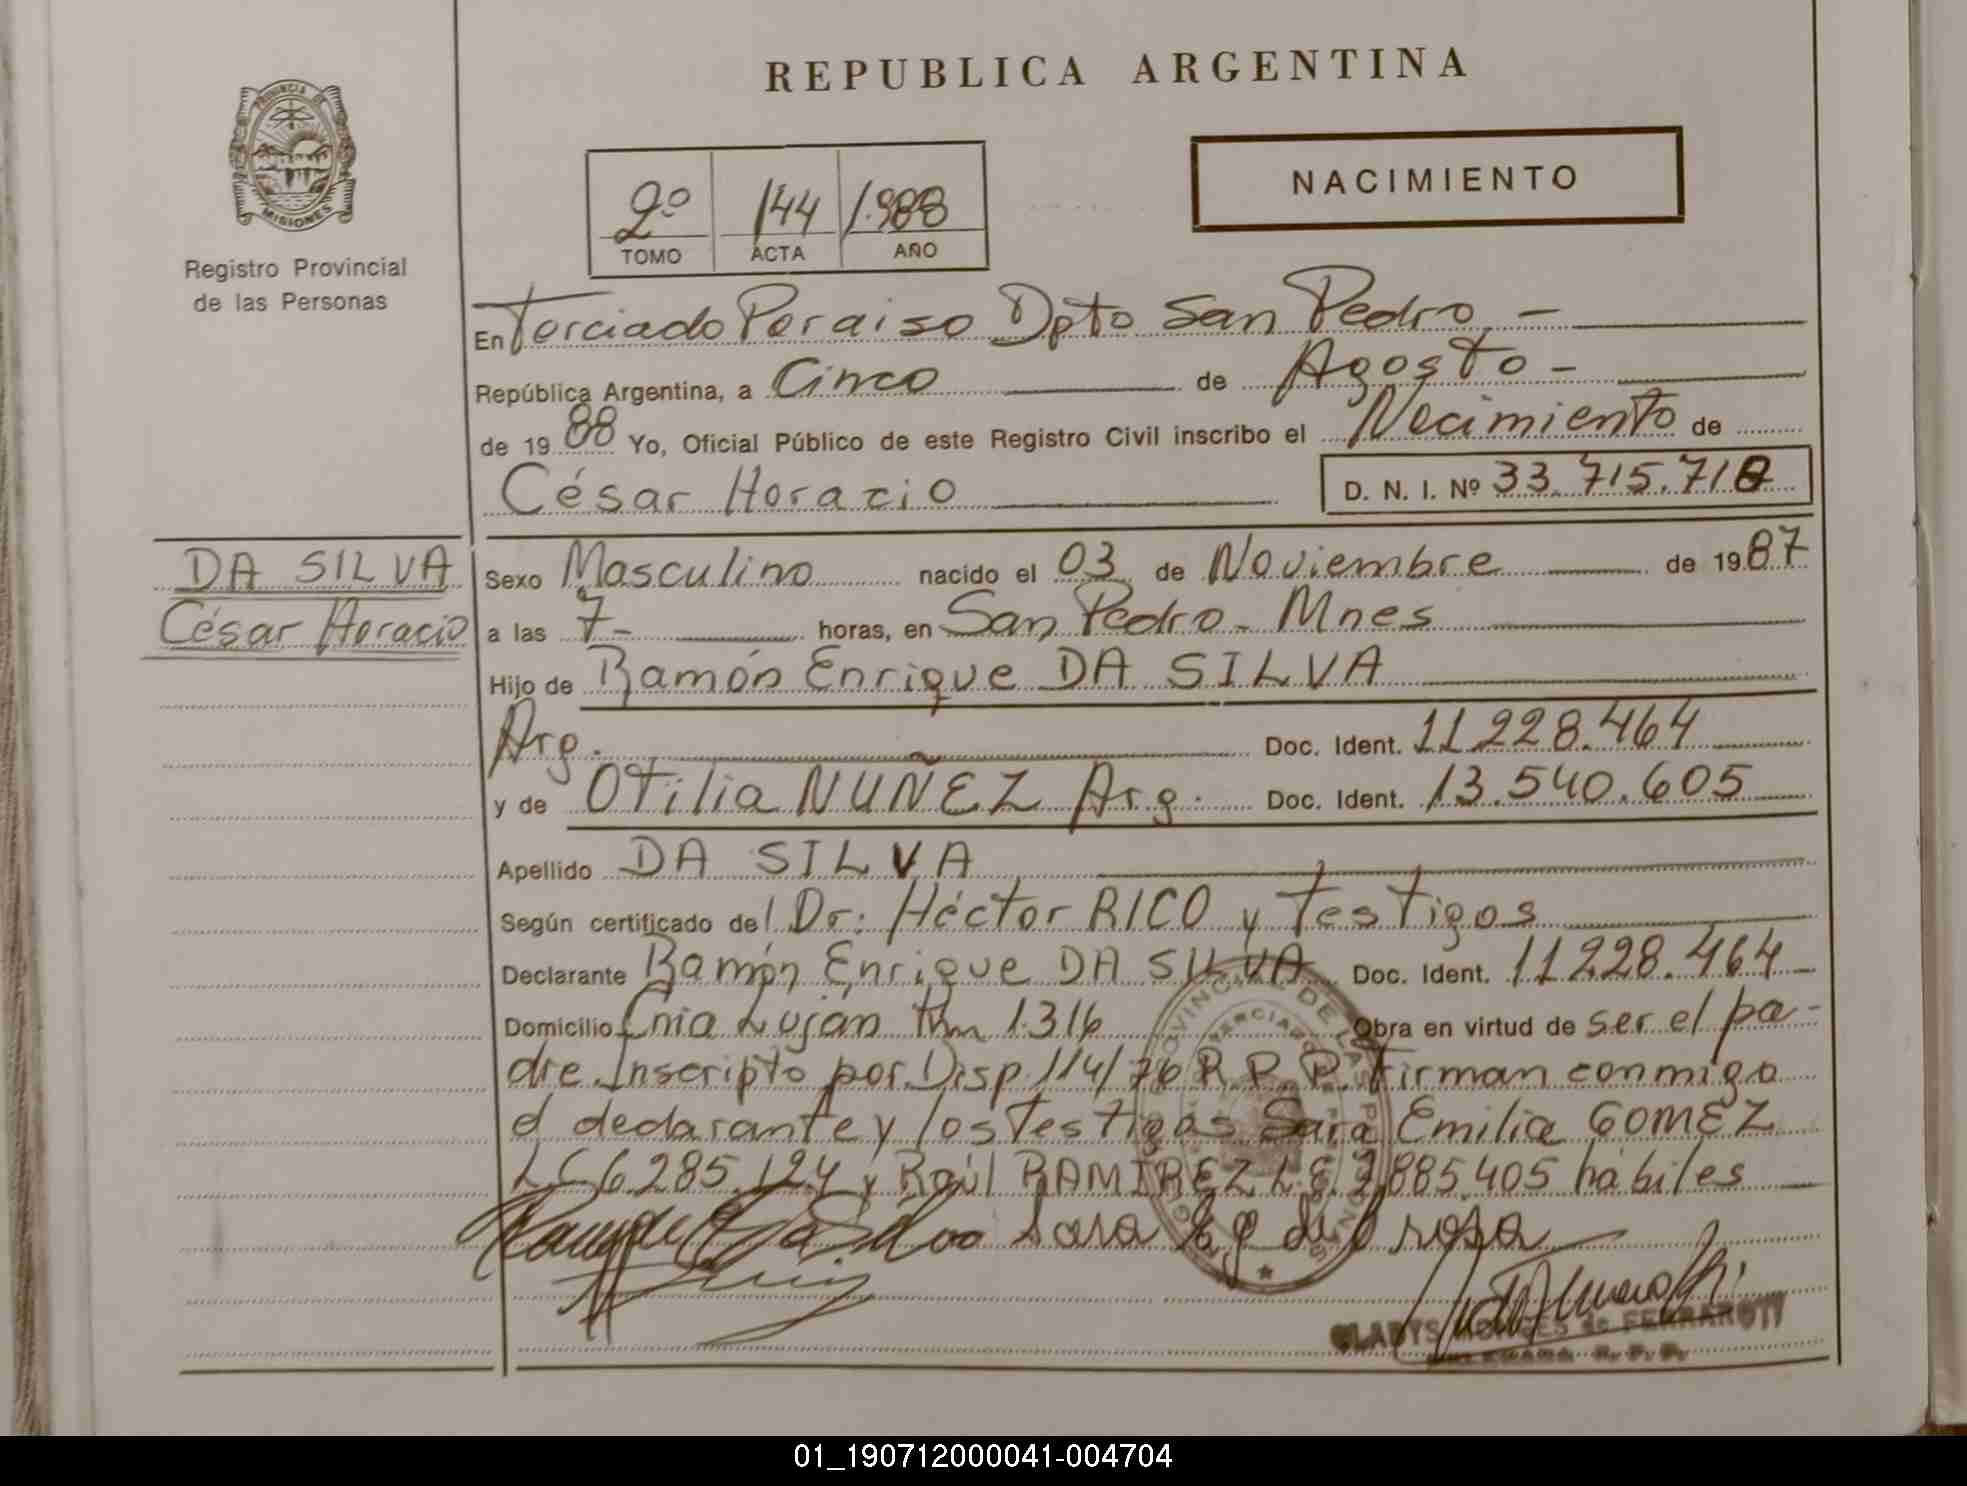 REPUBLICA ARGENTINA
PROVINCIA DE
MISIONES
Registro Provincial
de las Personas
2º 144 1.988
TOMO ACTA AÑO
NACIMIENTO
En Terciado Paraiso Dpto San Pedro. -
República Argentina, a Cinco de Agosto -
de 1988 Yo, Oficial Público de este Registro Civil inscribo el Nacimiento de
César Horacio D. N. I. Nº 33.715.718
DA SILVA
César Horacio
Sexo Masculino nacido el 03 de Noviembre de 1987
a las 7- horas, en San Pedro - Mnes
Hijo de Ramón Enrique DA SILVA
Arg. Doc. Ident. 11.228.464
y de Otilia NUÑEZ Arg. Doc. Ident. 13.540.605
Apellido DA SILVA
Según certificado del Dr: Héctor RICO y Testigos
Declarante Ramón Enrique DA SILVA Doc. Ident. 11.228.464
Domicilio Cnia Luján Km 1.316 Obra en virtud de ser el pa-
dre. Inscripto por Disp. 114/76 R.P.P. Firman conmigo
el declarante y los Testigos Sara Emilia GOMEZ
LC 6.285.124 y Raúl RAMIREZ L.E. 7.885.405 hábiles
GLADYS de FERRAROTI
R. P. P.
01_190712000041-004704